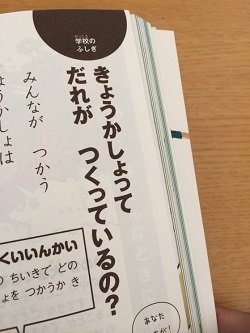 学校の
ふしぎ
きょうかしょって
だれが つくっているの?
みんなが つかう
ょうかしょは
くいいんかい
のちいきで どの
ょを つかうか き
あなた